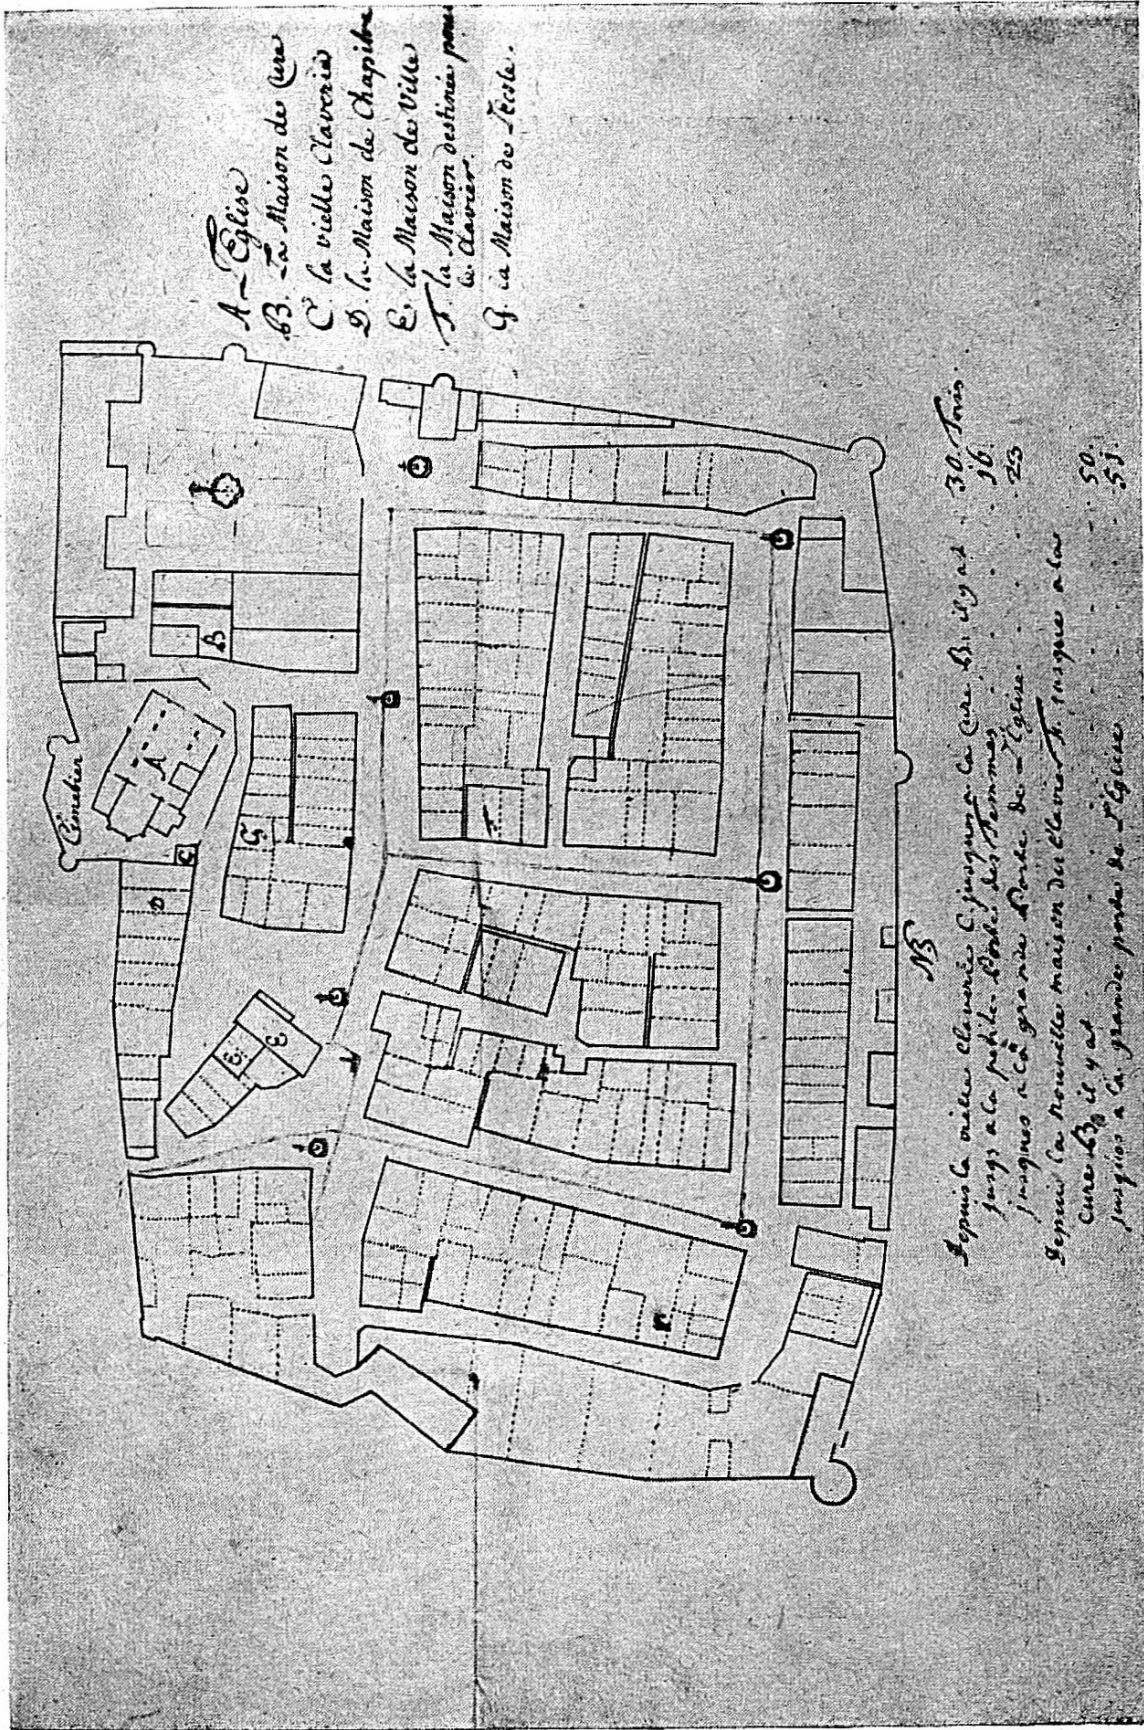 A L'Eglise
B. La Maison de Cure
C. la vielle Claverie
D. la Maison de Chapitre
E. la Maison de Ville
F. la Maison destinée pour
le Clavier.
G. la Maison de L'ecole.
Cimetier
A
B
C
D
G
E
E
F
NB
Depuis la vielle Claverie C. jusques a la Cure B. il y at 30. Tois.
jusqs a la petite Porte des femmes 16.
jusques a la grande Porte de L'Eglise 23
Depuis la nouvelle maison du Clavier F. jusque a la
Cure B. il y at 50.
jusques a la grande porte de L'Eglise 51.